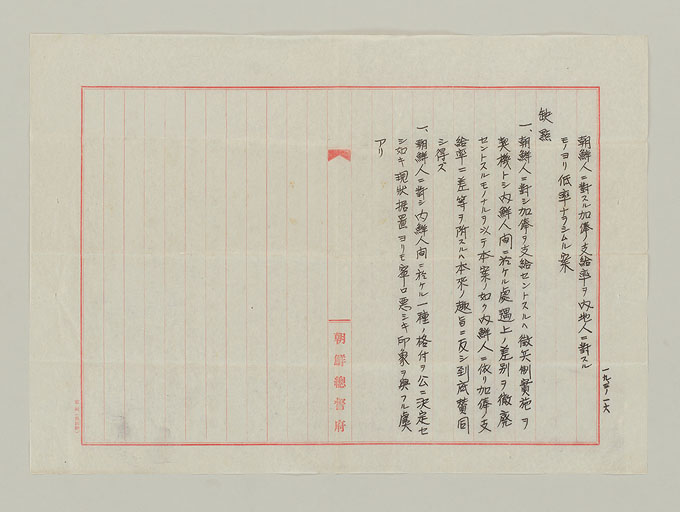 朝鮮人ニ対スル加俸ノ支給率ヲ内地人ニ対スル
モノヨリ低率ナラシムル案
欠点
一、朝鮮人ニ対シ加俸ヲ支給セントスルハ徴兵制実施ヲ
契機トシ内鮮人間ニ於ケル処遇上ノ差別ヲ徹廃
セントスルモノナルヲ以テ本案ノ如ク内鮮人ニ依リ加俸ノ支
給率ニ差等ヲ附スルハ本来ノ趣旨ニ反シ到底賛同
シ得ズ
一、朝鮮人ニ対シ内鮮人間ニ於ケル一種ノ格付ヲ公ニ決定セ
シ如キ現状据置ヨリモ寧ロ悪シキ印象ヲ与フル虞
アリ
朝鮮總督府